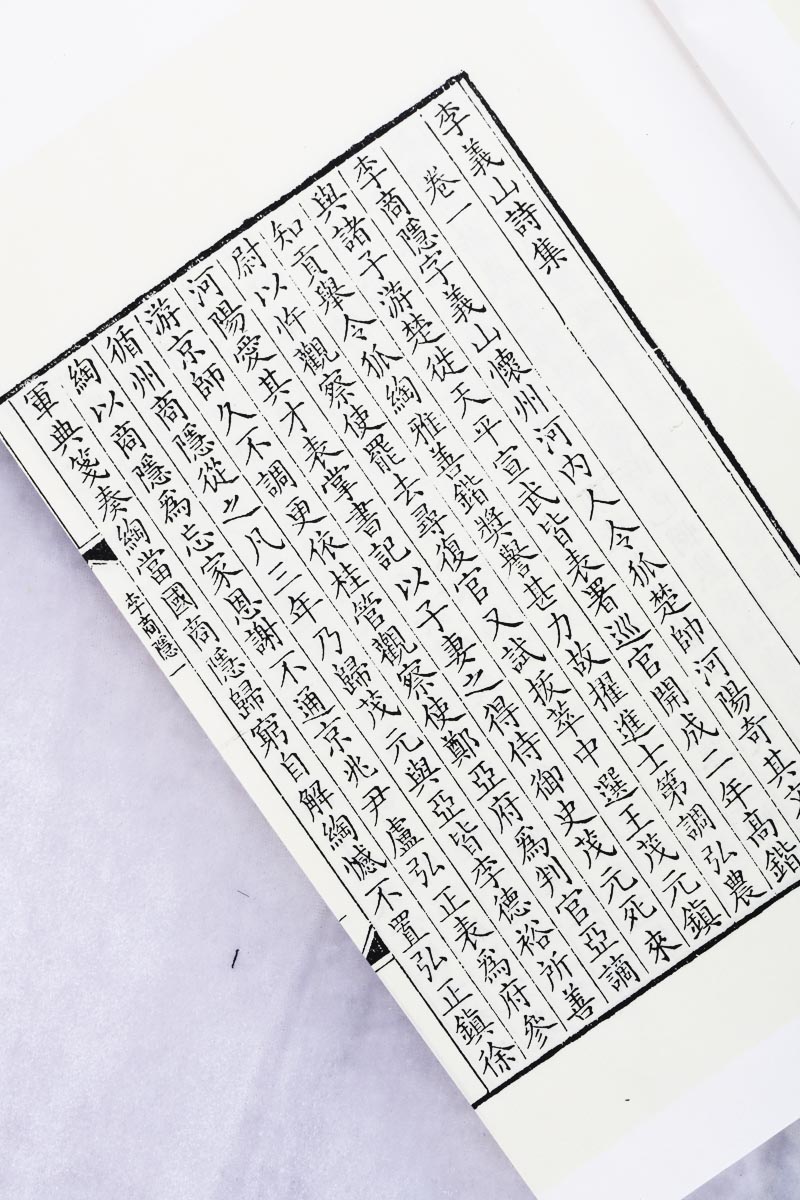 李義山詩集
卷一
李商隱字義山懷州河内人令狐楚帥河陽奇其
與諸子游楚徙天平宣武皆表署巡官開成二年高鍇
知貢舉令狐綯雅善鍇奬譽甚力故擢進士第調弘農
尉以忤觀察使罷去尋復官又試拔萃中選王茂元鎮
河陽愛其才表掌書記以子妻之得侍御史茂元死來
游京師久不調更依桂管觀察使鄭亞府為判官亞謫
循州商隱從之凡三年乃歸茂元與亞皆李德裕所善
綯以商隱為忘家恩謝不通京兆尹盧弘正表為府參
軍典箋奏綯當國商隱歸窮自解綯憾不置弘正鎮徐
李商隱